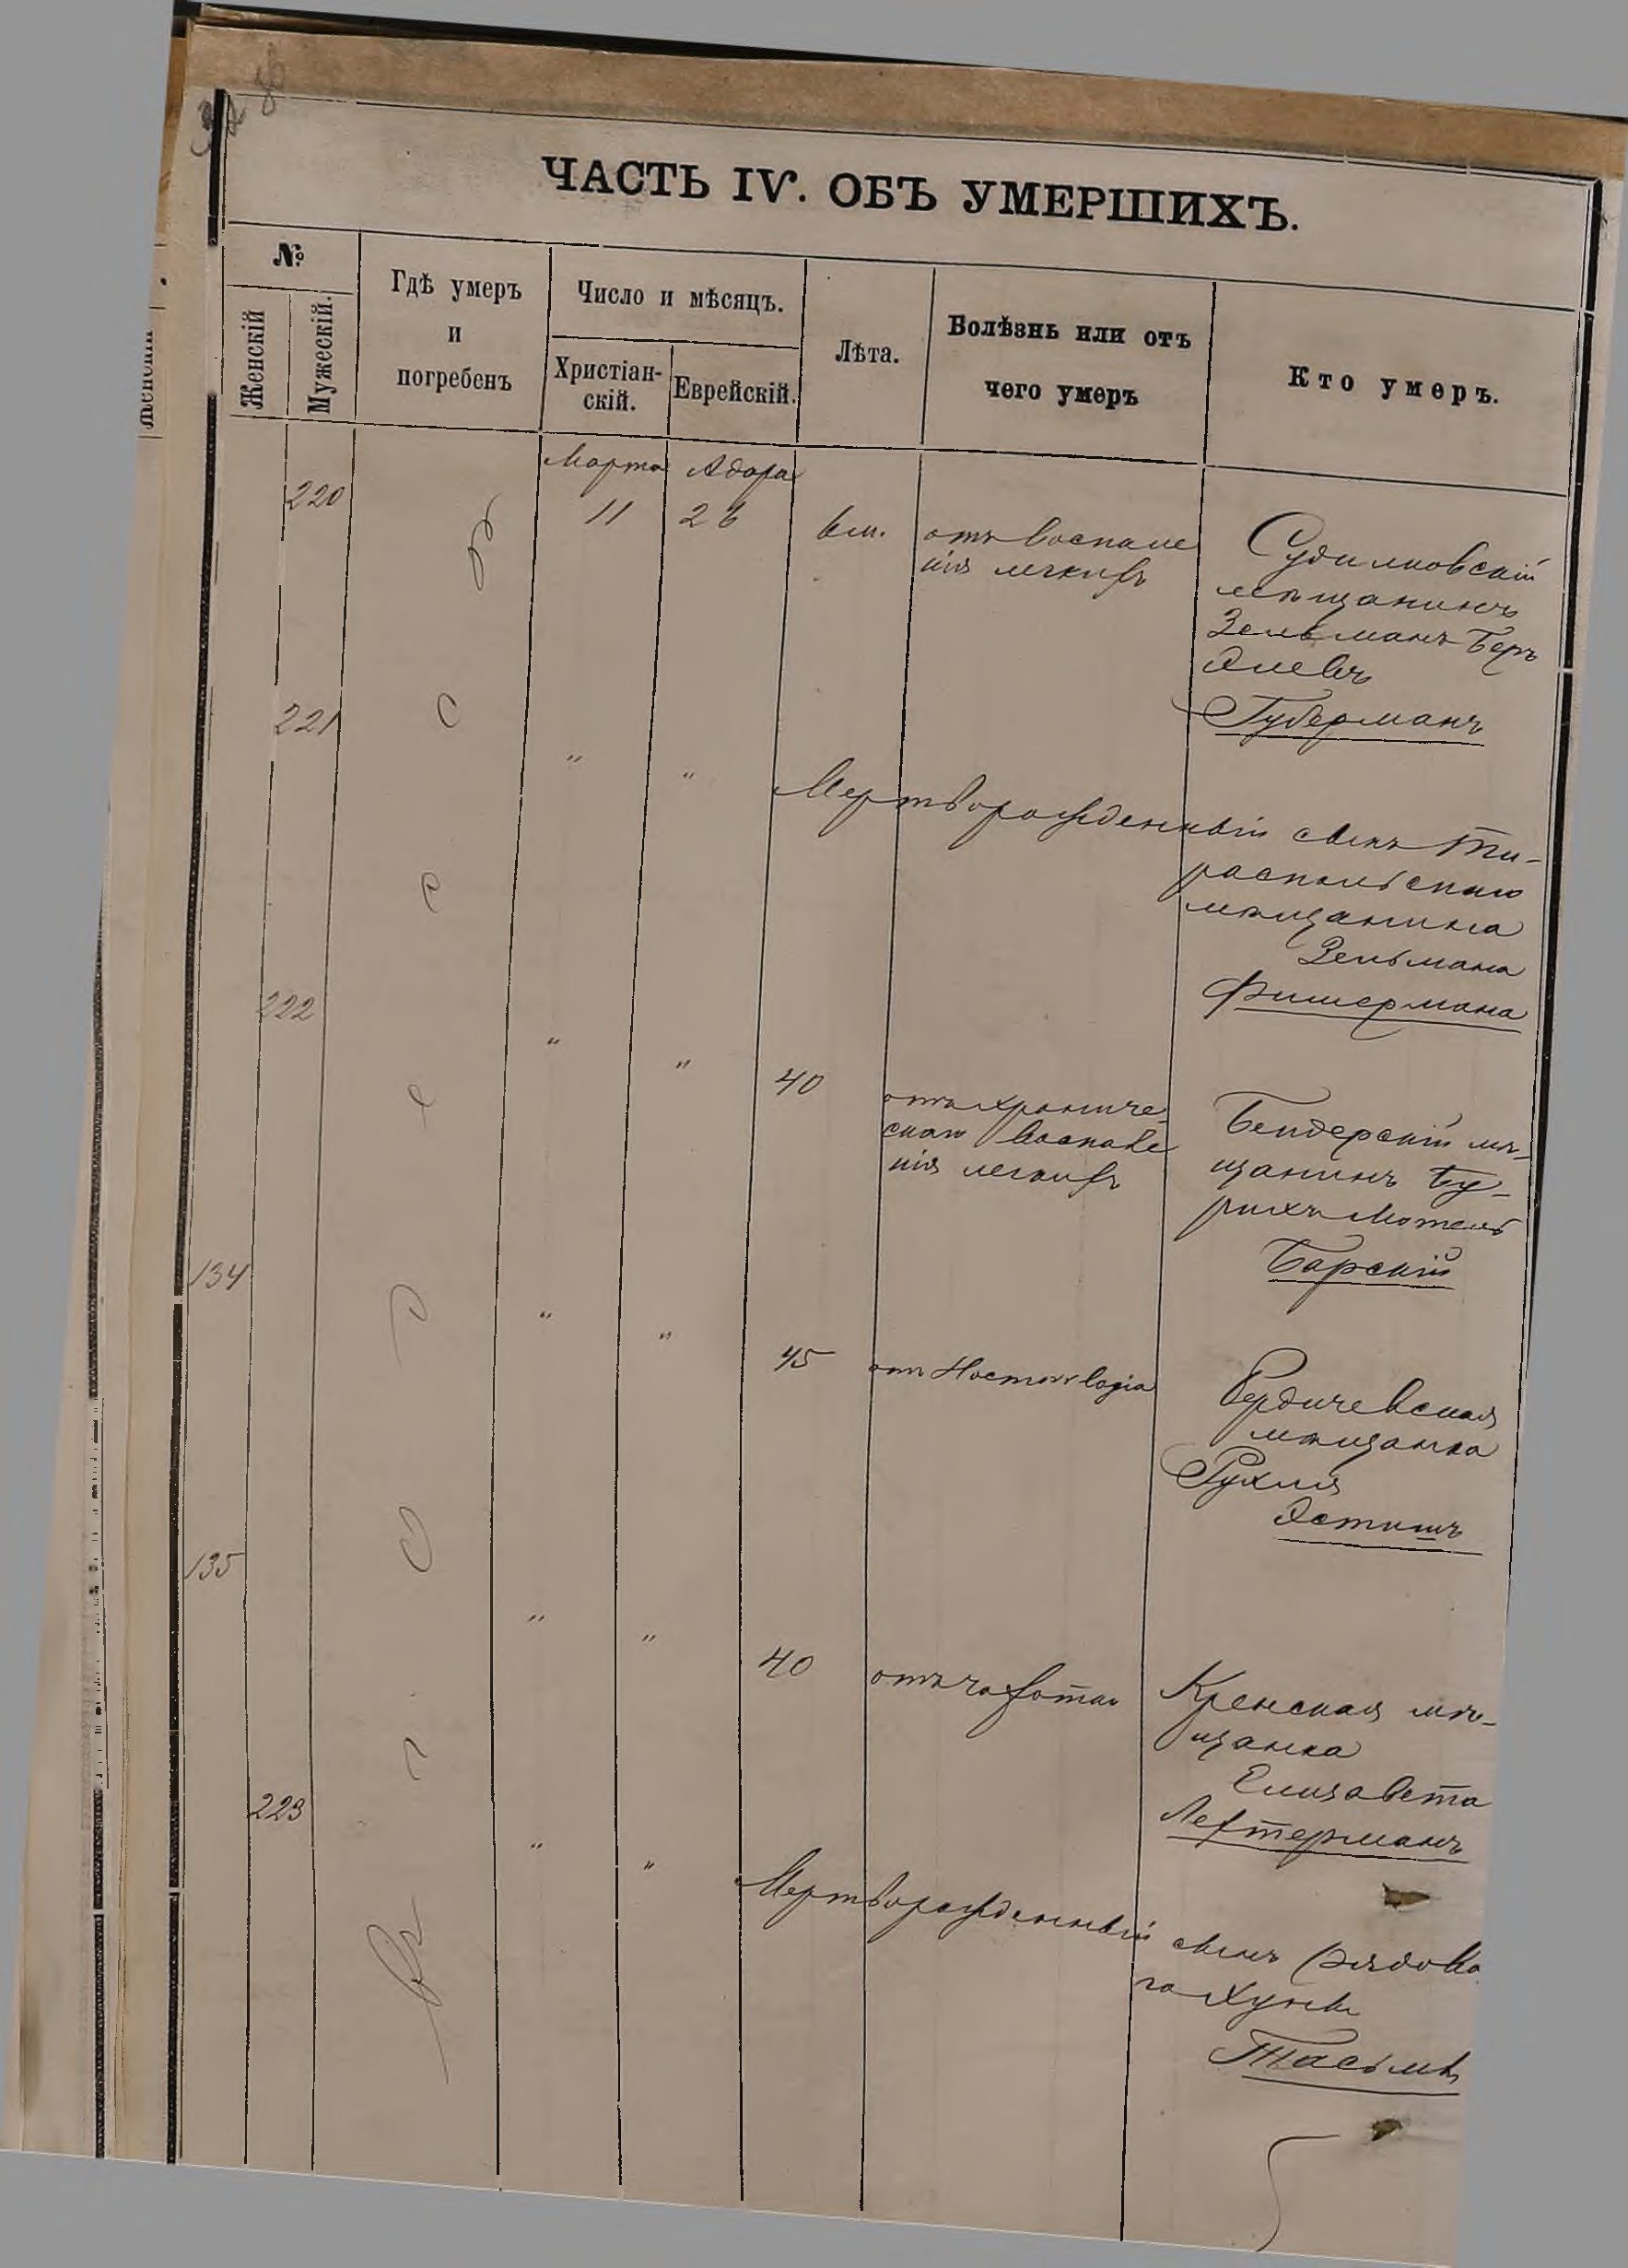 ЧАСТЬ IV. ОБЪ УМЕРШИХЪ.
№
Женскій
Мужескій.
Гдѣ умеръ
и
погребенъ
Число и мѣсяцъ.
Христіан-
скій.
Еврейскій.
Лѣта.
Болѣзнь или отъ
чего умеръ
Кто умеръ.
Марта Адара
220
11 26
отъ воспале
нія легкихъ
Судилковскій
мѣщанинъ
Зельманъ Беръ
Губерманъ
221
" "
Мертворожденный сынъ Ти-
распольскаго
мѣщанина
Зельмана
Фишермана
222
" "
40
отъ хрониче-
скаго воспале
нія легкихъ
Бендерскій мѣ-
щанинъ
Мотель
Барскій
134
" "
45
отъ
Бердичевская
мѣщанка
Рухля
135
" "
40
отъ чахотки
мѣ-
щанка
Елизавета
Лехтерманъ
223
" "
Мертворожденный сынъ рядова
го